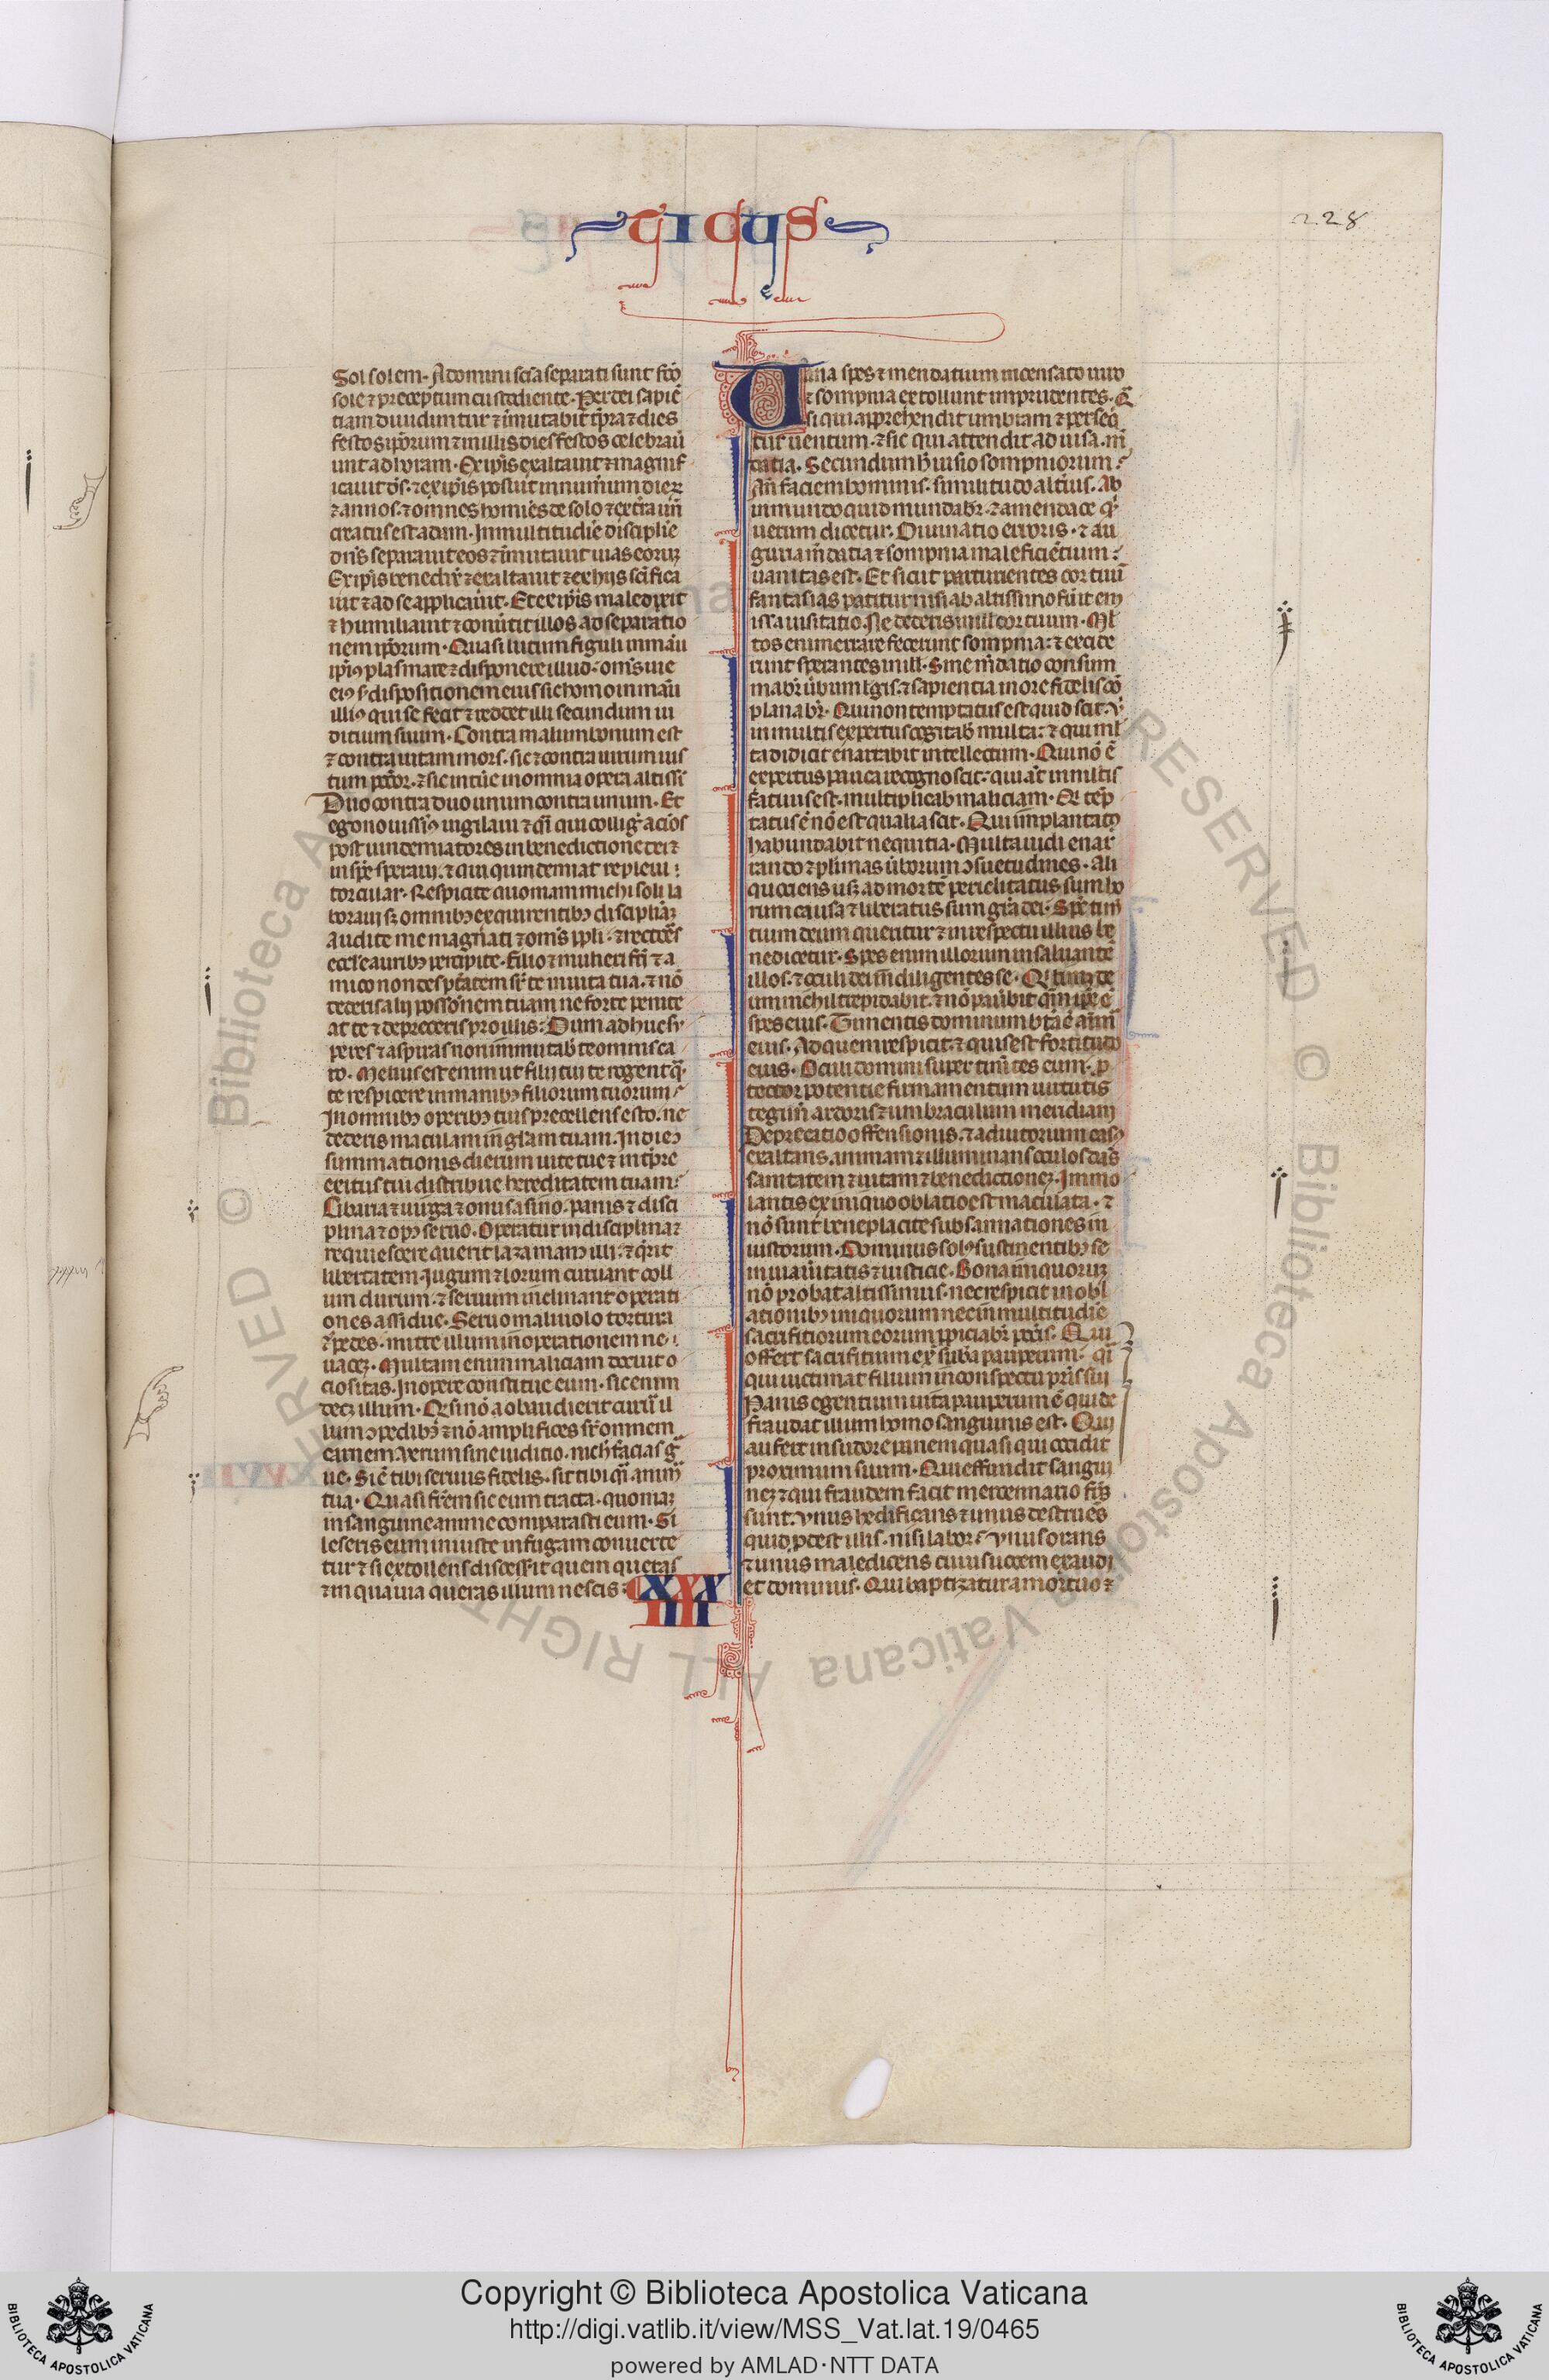 TICUS
228
Sol solem. A domini sc̃ia separati sunt fc̃o
sole ⁊ preceptum custodiente. Per dei sapiẽ
tiam diuiduntur ⁊ ĩmutabit tp̃ra ⁊ dies
festos ip̃orum ⁊ in illis dies festos celebrau̾
unt ad horam. Ex ip̃is exaltauit ⁊ magnif
icauit d̃s. ⁊ ex ip̃is posuit in num̾um dieꝝ
⁊ annos. ⁊ omnes homĩes de solo ⁊ ex t̾ra un̄
creatus est adam. In multitudĩe disciplĩe
dn̄s separauit eos ⁊ ĩmutauit uias eorũ
Ex ip̃is benedix̾ ⁊ exaltauit ⁊ ex hijs sc̃ifica
uit ⁊ ad se applicauit. Et ex ip̃is maledixit
⁊ humiliauit ⁊ conu̾tit illos a separatio
nem ip̃orum. Quasi lutum figuli in manu
ip̃iꝰ plasmare ⁊ disponere illud. om̃s uie
eiꝰ s̾ dispositionem eius sic homo in manu
illiꝰ qui se fecit ⁊ reddet illi secundum iu
ditium suum. Contra malum bonum est
⁊ contra uitam mors. sic ⁊ contra uirum ius
tum pc̃cor. ⁊ sic intuẽ in omnia opera altissĩ
Duo contra duo unum contra unum. Et
ego nouissĩꝰ uigilaui ⁊ q̃i qui collig̾ acĩos
post uindemiatores in benedictione dei ⁊
in sp̃e speraui. ⁊ qi qui uindemiat repleui
torcular. Respicite quoniam michi soli la
boraui sꝫ omnibꝰ exquirentibꝰ disciplinã
audite me magnati ⁊ om̃s pp̃li. ⁊ rectores
ecc̃le auribꝰ percipite. Filio ⁊ mulieri fr̃i ⁊ a
mico non des p̾tatem sr̾ te in uita tua. ⁊ nõ
dederis alij possõnem tuam ne forte penite
at te ⁊ depreceris pro illis. Dum adhuc su
peres ⁊ aspiras non immutab̾ te omnis ca
ro. Melius est enim ut filij tui te rogent q̃
te respicere in manibꝰ filiorum tuorum
In omnibꝰ operibꝰ tuis precellens esto. ne
dederis maculam in gl̃am tuam. In die ↄ
summationis dierum uite tue ⁊ in tp̃re
exitus tui distribue hereditatem tuam
Cibaria ⁊ uirga ⁊ onus asino. panis ⁊ disci
plina ⁊ opꝰ seruo. Operatur in disciplina ⁊
requiescere querit laxa manꝰ illi. ⁊ q̃rit
libertatem. Iugum ⁊ lorum curuant coll
um durum. ⁊ seruum inclinant operati
ones assidue. Seruo maliuolo tortura
⁊ ↄpedes. mitte illum in operationem ne
uacet. Multam enim maliciam docuit o
ciositas. In opere constitue eum. sic enim
decꝫ illum. Qđ si nõ obaudierit curua il
lum ↄpedibꝰ ⁊ nõ amplifices sr̾ omnem
carnem. Verum sine iuditio. nich̾ facias g̾
ue. Si ẽ tibi seruus fidelis. sit tibi q̃i anim̃
tua. Quasi fr̃em sic eum tracta. quoniam
in sanguine anime comparasti eum. Si
leseris eum iniuste in fugam conuerte
tur ⁊ si extollens discess̾it quem queras
⁊ in qua uia queras illum nescis. XXX
IIII
Uana spes ⁊ mendatium insensato uiro
⁊ sompnia extollunt imprudentes. Q̃
si qui apprehendit umbram ⁊ perseq̾
tur uentum. ⁊ sic qui attendit ad uisa. m̃
datia. Secundum h̾ uisio sompniorum
An̄ faciem hominis. similitudo alt̾ius. Ab
inmundo quid mundabr̾. ⁊ a mendace q̾
uerum dicetur. Diuinatio erroris. ⁊ au
guria m̃datia ⁊ sompnia maleficiẽtium
uanitas est. Et sicut parturientes cor tuũ
fantasias patitur nisi ab altissimo fu̾it em
issa uisitatio. Ne dederis in ill̾ cor tuum. Ml̾
tos enim errare fecerunt sompnia. ⁊ excide
runt sperantes in ill̾. Sine m̃datio consum
mabr̾ u̾bum lgis. ⁊ sapientia in ore fidelis cõ
planabr̾. Qui non temptatus est quid scit. Vir
in multis expertus cogitab̾ multa. ⁊ qui ml̾
ta didicit enarrabit intellectum. Qui nõ ẽ
expertus pauca recognoscit. qui aũt in multis
fatuus est. multiplicab̾ maliciam. Qi tẽp
tatus ẽ nõ est qualia scit. Qui implantatꝰ
habundabit nequitia. Multa uidi enar
rando ⁊ pl̃imas u̾borum ↄsuetudines. Ali
quociens usqꝫ ad mortẽ periclitatus sum ho
rum causa ⁊ liberatus sum gr̃a dei. Sp̃c tim̃
tium deum queritur ⁊ in respectu illius be
nedicetur. Spes enim illorum in saluante
illos. ⁊ oculi dei in̄ diligentes se. Qi timꝫ de
um nichil trepidabit. ⁊ nõ pauebit qm̃ ip̃e ẽ
spes eius. Timentis dominum bt̃a ẽ anim̃
eius. Ad quem respicit. ⁊ quis est fortitudo
eius. Oculi domini super tim̃tes eum. ꝓ
tector potentie firmamentum uirtutis
tegim̃ ardoris ⁊ umbraculum meridiani
Deprecatio offensionis. ⁊ adiutorium casꝰ
exaltans animam ⁊ illuminans oculos dans
sanitatem ⁊ uitam ⁊ benedictionem. Immo
lantis ex iniquo oblatio est maculata. ⁊
nõ sunt beneplacite subsannationes in
iustorum. Dominus solꝰ sustinentibꝰ se
in uia u̾itatis ⁊ iusticie. Dona iniquorum
nõ probat altissimus. nec respicit in obl
ationibꝰ iniquorum nec in multitudĩe
sacrifitiorum eorum ꝓpiciabr̾ pcc̃is. Qui
offert sacrifitium ex sub̃a pauperum. q̃i
qui uictimat filium in conspectu pr̃is sui
Panis egentium uita pauperum ẽ qui de
fraudat illum homo sanguinis est. Qui
aufert in sudore panem quasi qui occidit
proximum suum. Qui effundit sangui
neꝫ ⁊ qui fraudem facit mercennario fr̃s
sunt. Vnus hedificans ⁊ unus destruẽs
quid ꝓdest illis. nisi labor. Vnus orans
⁊ unus maledicens cuius uocem exaudi
et dominus. Qui baptizatur a mortuo ⁊
Copyright © Biblioteca Apostolica Vaticana
http://digi.vatlib.it/view/MSS_Vat.lat.19/0465
powered by AMLAD·NTT DATA
BIBLIOTECA APOSTOLICA VATICANA
BIBLIOTECA APOSTOLICA VATICANA